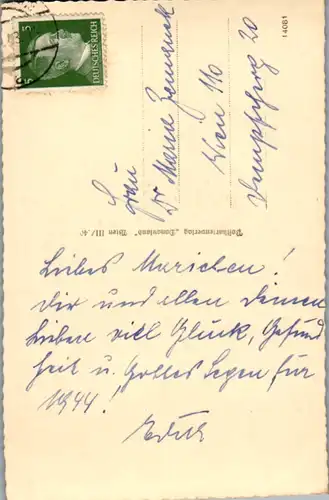 5
5
DEUTSCHES REICH
14081
Frau
Dr Maria
Wien
20
Postkartenverlag „Donauland" Wien III/40
Liebes Mariechen!
Dir und allen Deinen
Lieben viel Glück, Gesund
heit u. Gottes Segen für
1944!
Edith